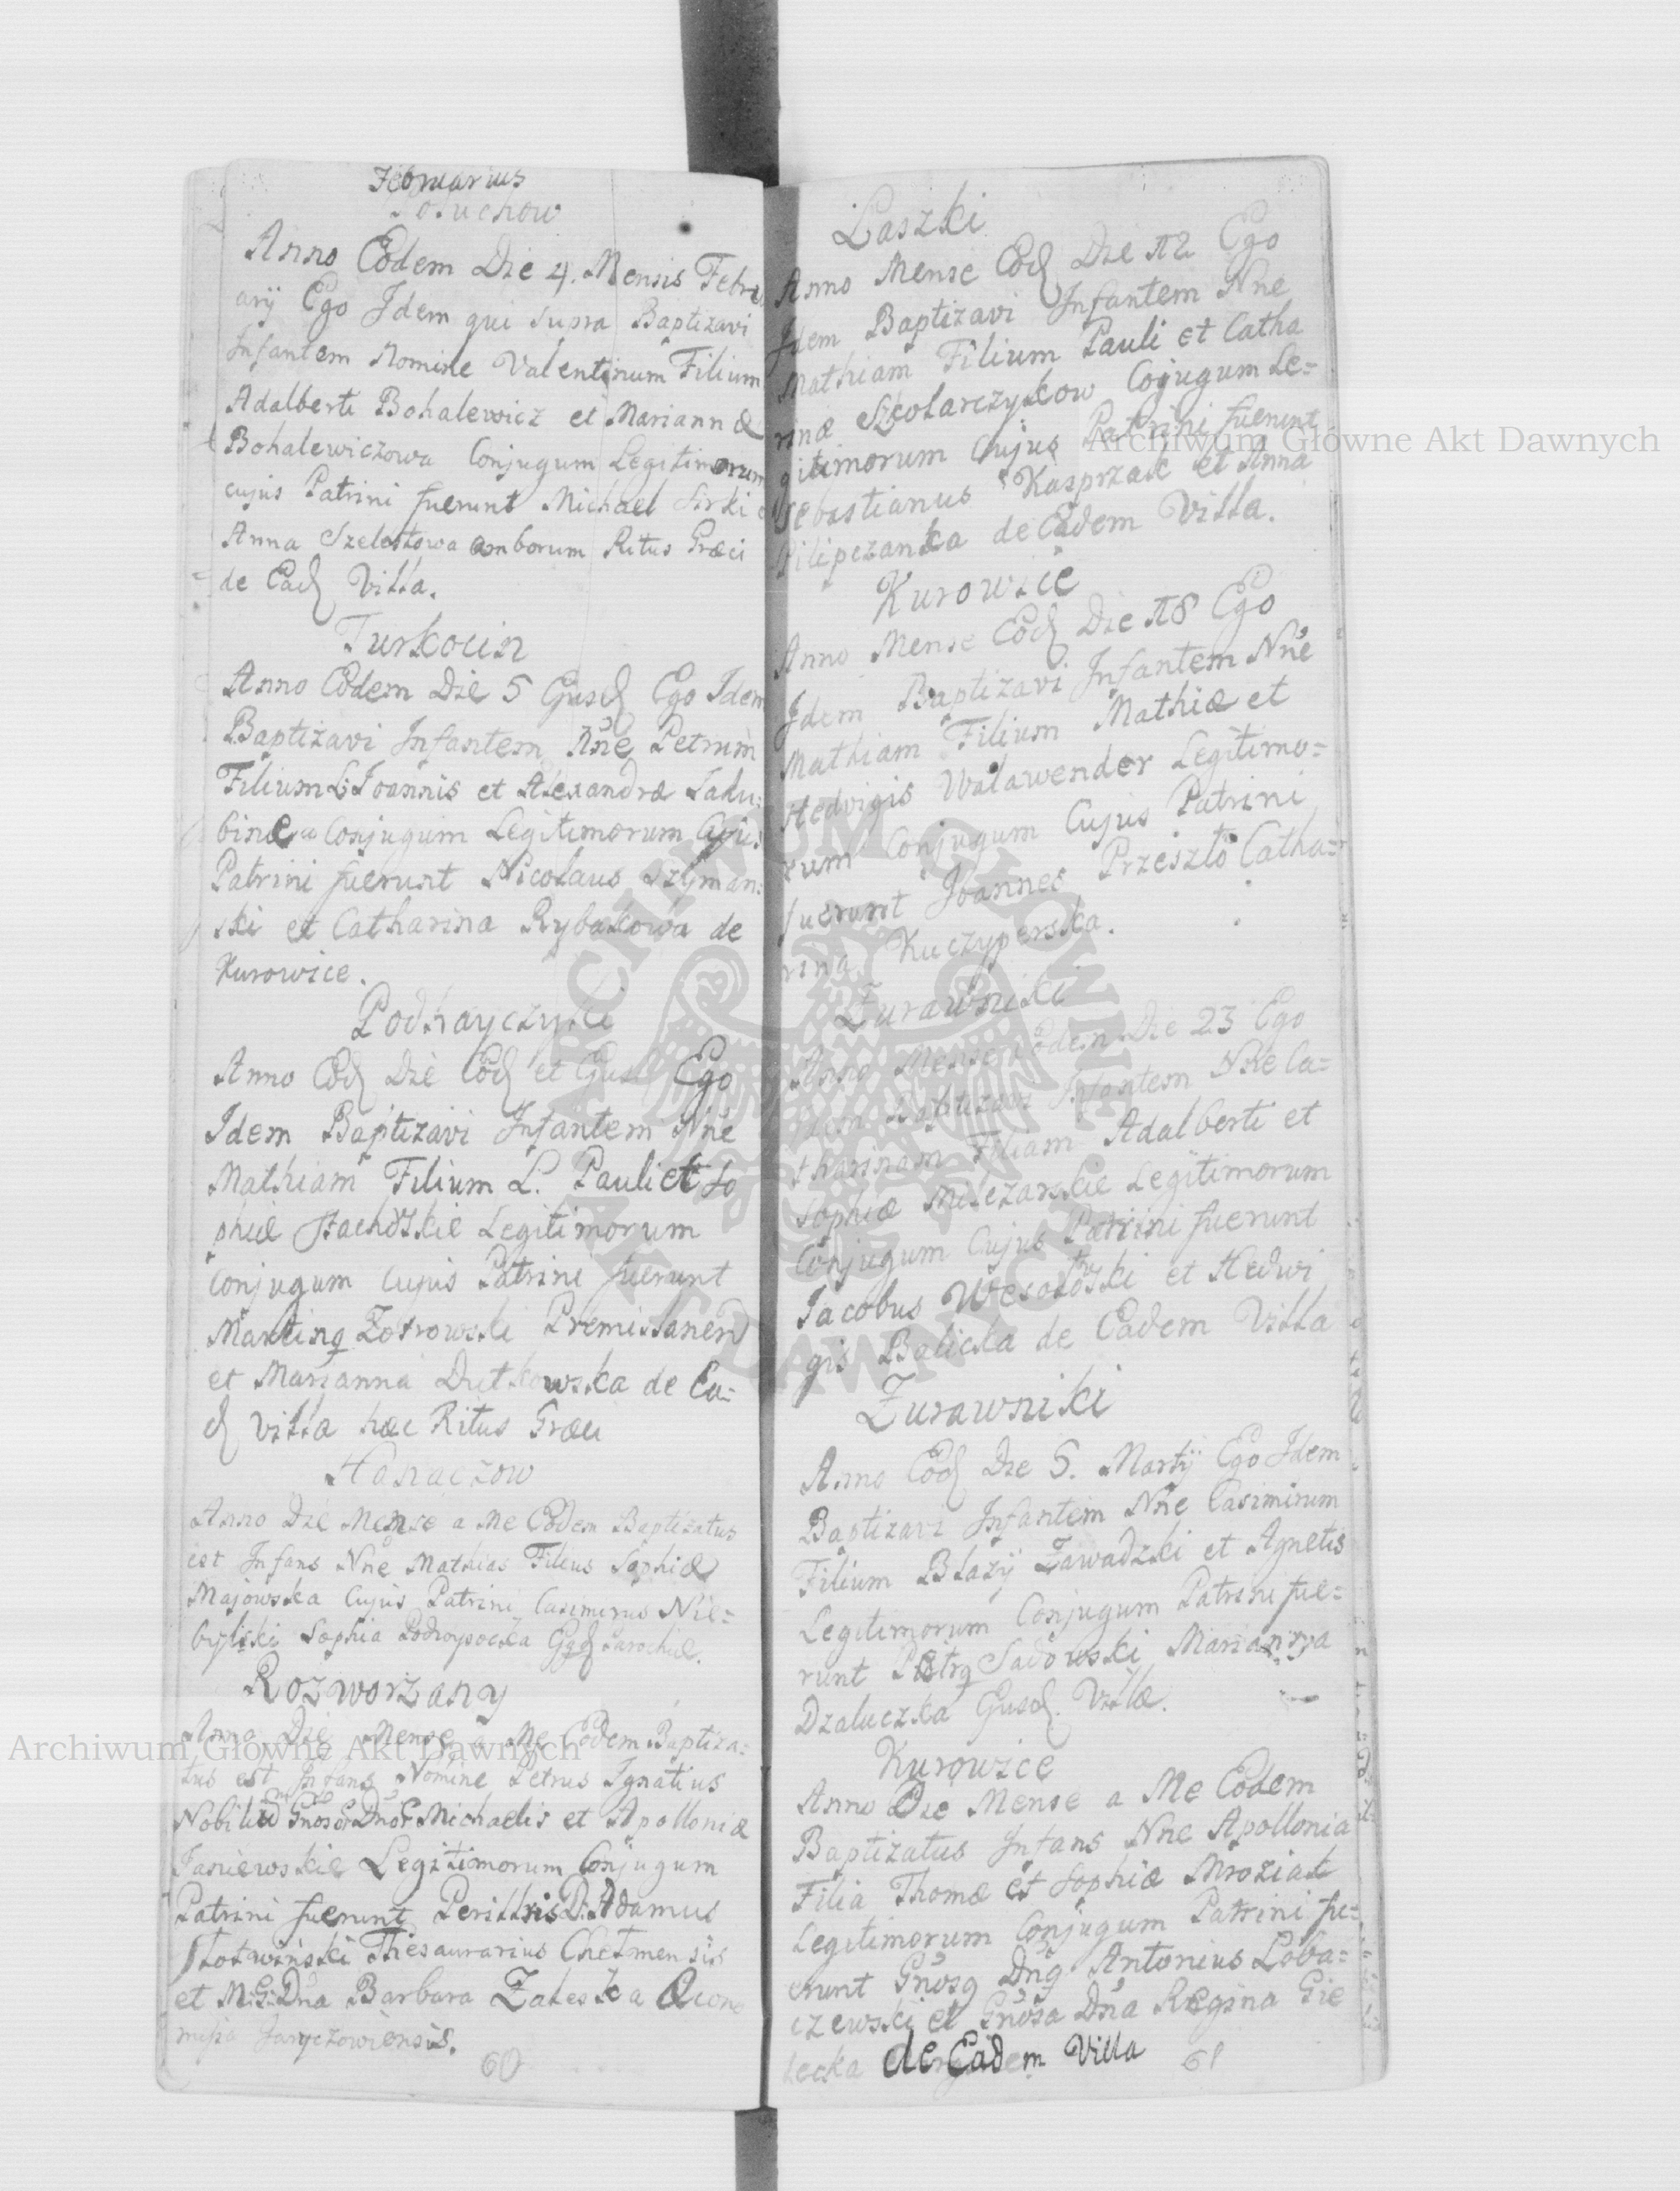 Februarius
Anno Eodem Die 4. Mensis Febru
arij Ego Idem qui supra Baptizavi
Infantem Nomine Valentinum Filium
Adalberti Bohalewicz et Mariannæ
Bohalewiczowa Conjugum Legitimorum
cujus Patrini fuerunt Michael Sirki
Anna Szelestowa amborum Ritus Græci
de Ead Villa.
Turkocin
Anno Eodem Die 5 Ejusd Ego Idem
Baptizavi Infantem Nne Petrum
Filium L. Joannis et Alexandræ
Conjugum Legitimorum Cujus
Patrini fuerunt Nicolaus Szyman:
ski et Catharina Rybakowa de
Kurowice.
Podhayczyki
Anno Eod Die Eod et Ego
Idem Baptizavi Infantem Nne
Mathiam Filium L. Pauli et So
phiæ Legitimorum
Conjugum Cujus Patrini fuerunt
Zotrowski
et Marianna Dutkowska de Ea:
d Villa hæc Ritus Græci
Hanaczow
Anno Die Mense a Me Eodem Baptizatus
est Infans Nne Mathias Filius Sophiæ
Majowska Cujus Patrini Casimirus Nie=
bylski Sophia Parochiæ.
Rozworzany
Anno Die Mense a Me Eodem Baptiza=
tus est Infans Nomine Petrus Ignatius
Michaelis et Apolloniæ
Janiewskie Legitimorum Conjugum
Patrini fuerunt D. Adamus
Thesaurarius Chelmensis
et M.G. Dna Barbara Zaleska Œcono
missa Jaryczowiensis.
60
Laszki
Anno Mense Eod Die 12 Ego
Idem Baptizavi Infantem Nne
Mathiam Filium Pauli et Catha
rinæ Szkolarczykow Cojugum Le=
gitimorum Cujus Patrini fuerunt
Sebastianus Kasprzak et Anna
Pilipczanka de Eadem Villa.
Kurowice
Anno Mense Eod Die 18 Ego
Idem Baptizavi Infantem Nne
Mathiam Filium Mathiæ et
Hedvigis Walawender Legitimo=
rum Conjugum Cujus Patrini
fuerunt Joannes Przeszlo Catha=
rina Kuczyperska.
Zurawniki
Anno Mense Eodem Die 23 Ego
Idem Baptizavi Infantem Nne Ca=
tharinam Filiam Adalberti et
Sophiæ Milczarskie Legitimorum
Conjugum Cujus Patrini fuerunt
Jacobus et Hedwi
gis Balicka de Eadem Villa
Zurawniki
Anno Eod Die 5. Martij Ego Idem
Baptizavi Infantem Nne Casimirum
Filium Blazij Zawadzki et Agnetis
Legitimorum Conjugum Patrini fue=
runt Sadowski Marianna
Dzaluczka Ejusd. Villæ.
Kurowice
Anno Die Mense a Me Eodem
Baptizatus Infans Nne Apollonia
Filia Thomæ et Sophiæ Mroziak
Legitimorum Conjugum Patrini fu=
erunt Antonius Loba=
czewski et Gnosa Dna Regina Gie
lecka de Eadem Villa
61
Archiwum Główne Akt Dawnych
Archiwum Główne Akt Dawnych
ARCHIWUM GŁÓWNE AKT DAWNYCH